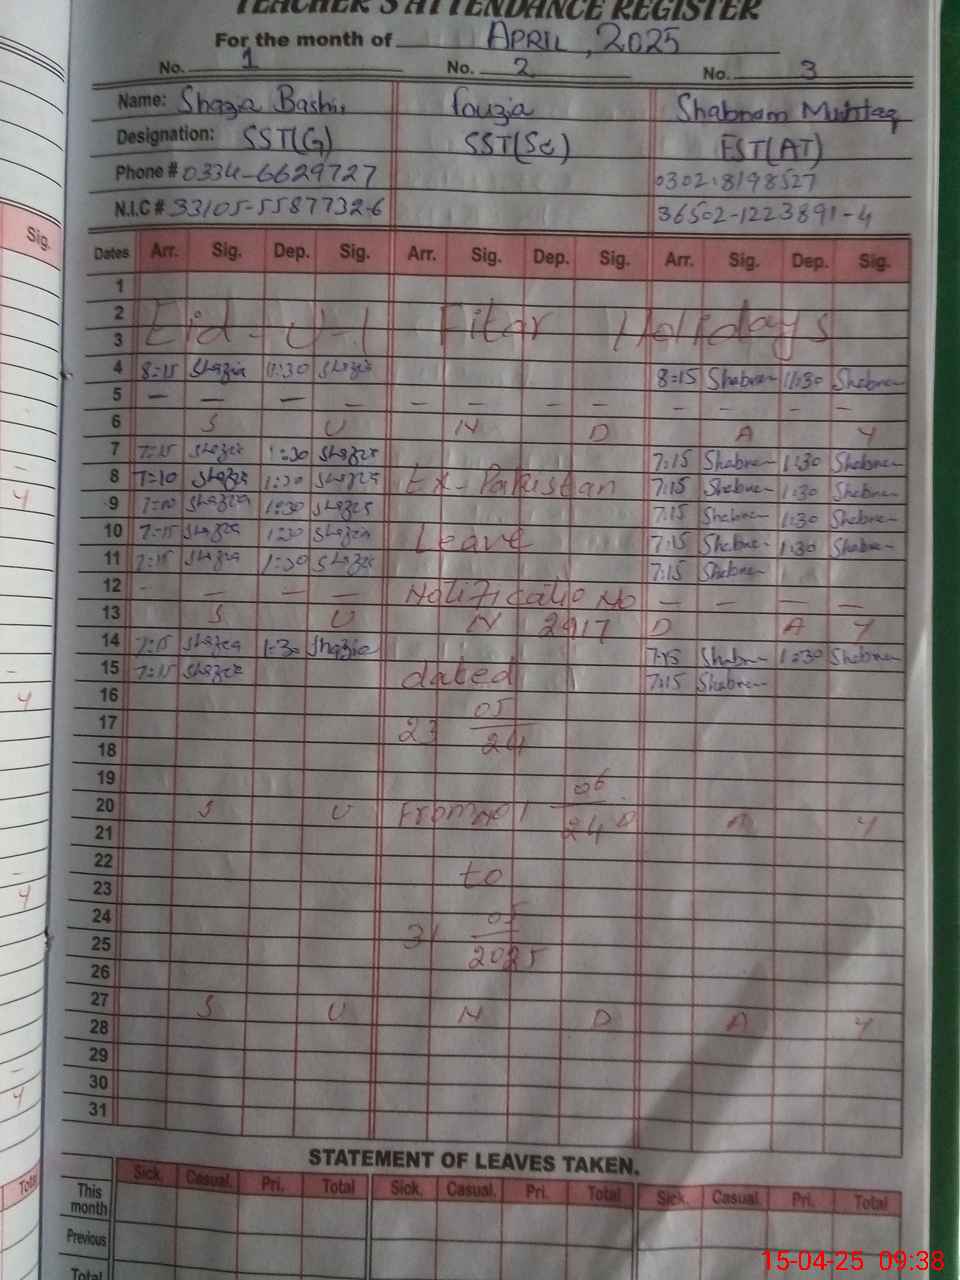 TEACHER'S ATTENDANCE REGISTER
For the month of APRIL, 2025
No. 1 No. 2 No. 3
Name: Shazia Bashir Fouzia Shabnam Mushtaq
Designation: SST(G) SST(Sc) EST(AT)
Phone # 0334-6629727 0302-8198527
N.I.C # 33105-5587732-6 36502-1223891-4
Sig. Dates Arr. Sig. Dep. Sig. Arr. Sig. Dep. Sig. Arr. Sig. Dep. Sig.
1
2 Eid-U-l Fitar Holidays
3
4 8=15 Shazia 11:30 Shazia 8=15 Shabnam 11:30 Shabnam
5 — — — — — — — — — — — —
6 S U N D A Y
7 7=15 Shazia 1:30 Shazia 7:15 Shabnam 1:30 Shabnam
8 7=10 Shazia 1:30 Shazia Ex-Pakistan 7:15 Shabnam 1:30 Shabnam
9 7=10 Shazia 1:30 Shazia 7:15 Shabnam 1:30 Shabnam
10 7=15 Shazia 1:30 Shazia Leave 7:15 Shabnam 1:30 Shabnam
11 7=15 Shazia 1:30 Shazia 7:15 Shabnam
12 - — — — Notificatio No — — — —
13 S U N 2917 D A Y
14 7=15 Shazia 1:30 Shazia 7:15 Shabnam 1:30 Shabnam
15 7=15 Shazia dated 7:15 Shabnam
16
17 23 05/24
18
19
20 S U From 06/24 A Y
21
22
23 to
24
25 31 05/2025
26
27 S U N D A Y
28
29
30
31
STATEMENT OF LEAVES TAKEN.
Total Sick. Casual. Pri. Total Sick. Casual. Pri. Total Sick. Casual. Pri. Total
This month
Previous
Total
15-04-25 09:38